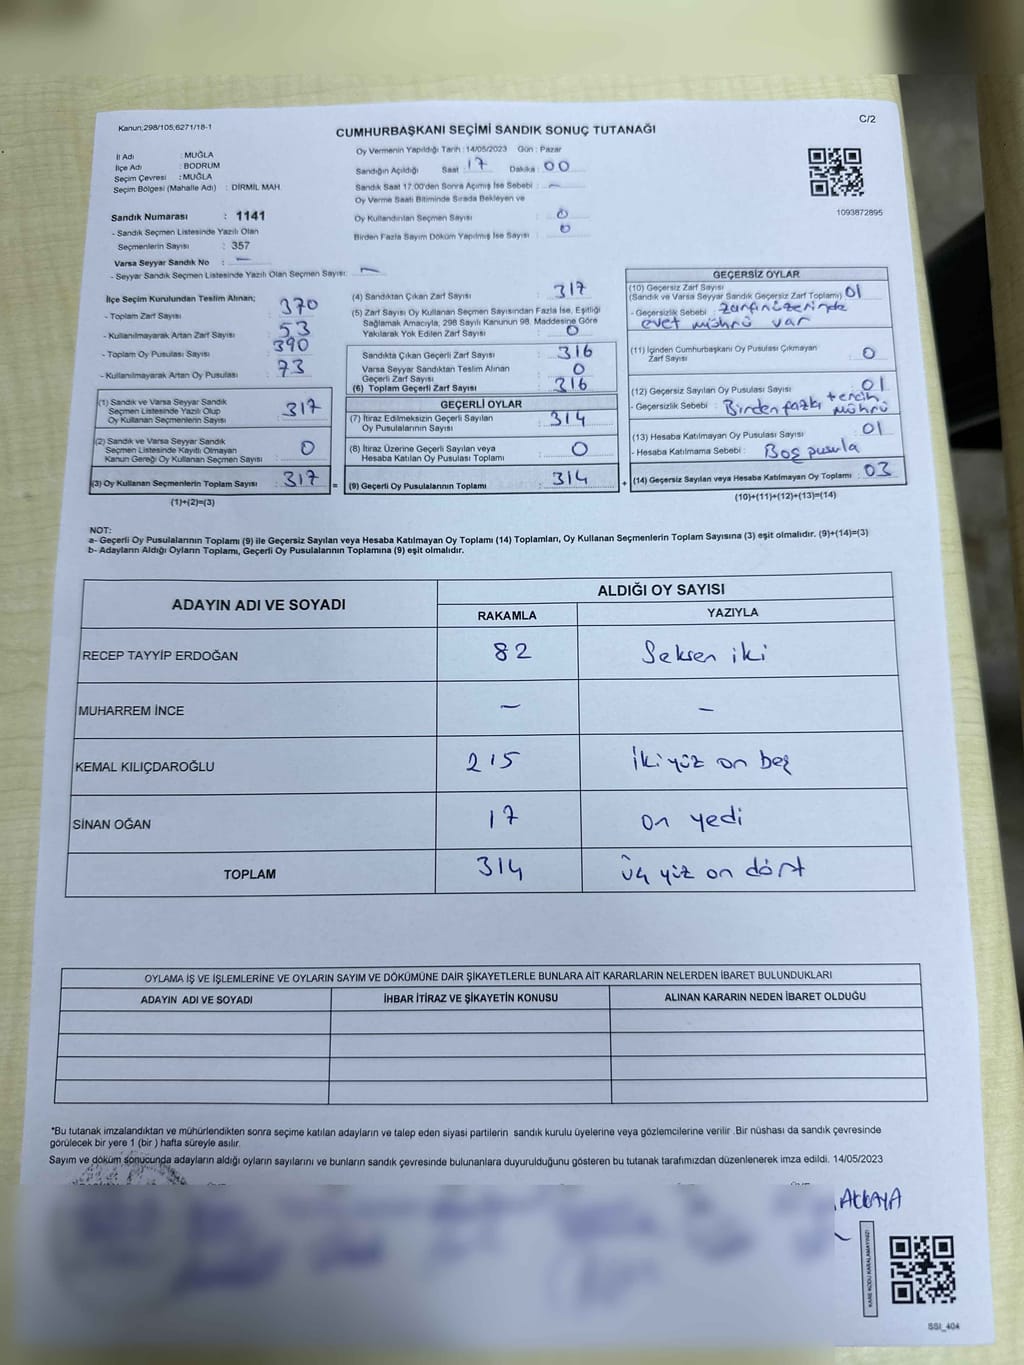 Kanun;298/105,6271/18-1
C/2
CUMHURBAŞKANI SEÇİMİ SANDIK SONUÇ TUTANAĞI
İl Adı : MUĞLA
İlçe Adı : BODRUM
Seçim Çevresi : MUĞLA
Seçim Bölgesi (Mahalle Adı) : DİRMİL MAH.
Oy Vermenin Yapıldığı Tarih : 14/05/2023 Gün : Pazar
Sandığın Açıldığı Saat : 17 Dakika : 00
Sandık Saat 17:00'den Sonra Açımış İse Sebebi : –
Oy Verme Saati Bitiminde Sırada Bekleyen ve
Oy Kullandırılan Seçmen Sayısı : 0
Birden Fazla Sayım Döküm Yapılmış İse Sayısı : 0
1093872895
Sandık Numarası : 1141
- Sandık Seçmen Listesinde Yazılı Olan
Seçmenlerin Sayısı : 357
Varsa Seyyar Sandık No : –
- Seyyar Sandık Seçmen Listesinde Yazılı Olan Seçmen Sayısı: –
İlçe Seçim Kurulundan Teslim Alınan;
- Toplam Zarf Sayısı : 370
- Kullanılmayarak Artan Zarf Sayısı : 53
- Toplam Oy Pusulası Sayısı : 390
- Kullanılmayarak Artan Oy Pusulası : 73
(1) Sandık ve Varsa Seyyar Sandık
Seçmen Listesinde Yazılı Olup
Oy Kullanan Seçmenlerin Sayısı : 317
(2) Sandık ve Varsa Seyyar Sandık
Seçmen Listesinde Kayıtlı Olmayan
Kanun Gereği Oy Kullanan Seçmen Sayısı : 0
(3) Oy Kullanan Seçmenlerin Toplam Sayısı : 317
(1)+(2)=(3)
(4) Sandıktan Çıkan Zarf Sayısı : 317
(5) Zarf Sayısı Oy Kullanan Seçmen Sayısından Fazla İse, Eşitliği
Sağlamak Amacıyla, 298 Sayılı Kanunun 98. Maddesine Göre
Yakılarak Yok Edilen Zarf Sayısı : 0
Sandıkta Çıkan Geçerli Zarf Sayısı : 316
Varsa Seyyar Sandıktan Teslim Alınan
Geçerli Zarf Sayısı : 0
(6) Toplam Geçerli Zarf Sayısı : 316
GEÇERLİ OYLAR
(7) İtiraz Edilmeksizin Geçerli Sayılan
Oy Pusulasının Sayısı : 314
(8) İtiraz Üzerine Geçerli Sayılan veya
Hesaba Katılan Oy Pusulası Toplamı : 0
= (9) Geçerli Oy Pusulalarının Toplamı : 314 +
GEÇERSİZ OYLAR
(10) Geçersiz Zarf Sayısı
(Sandık ve Varsa Seyyar Sandık Geçersiz Zarf Toplamı) : 01
- Geçersizlik Sebebi : Zarfın üzerinde
evet mührü var
(11) İçinden Cumhurbaşkanı Oy Pusulası Çıkmayan
Zarf Sayısı : 0
(12) Geçersiz Sayılan Oy Pusulası Sayısı : 01
- Geçersizlik Sebebi : Birden fazla tercih
mührü
(13) Hesaba Katılmayan Oy Pusulası Sayısı : 01
- Hesaba Katılmama Sebebi : Boş pusula
(14) Geçersiz Sayılan veya Hesaba Katılmayan Oy Toplamı : 03
(10)+(11)+(12)+(13)=(14)
NOT:
a- Geçerli Oy Pusulalarının Toplamı (9) ile Geçersiz Sayılan veya Hesaba Katılmayan Oy Toplamı (14) Toplamları, Oy Kullanan Seçmenlerin Toplam Sayısına (3) eşit olmalıdır. (9)+(14)=(3)
b- Adayların Aldığı Oyların Toplamı, Geçerli Oy Pusulalarının Toplamına (9) eşit olmalıdır.
ADAYIN ADI VE SOYADI
ALDIĞI OY SAYISI
RAKAMLA YAZIYLA
RECEP TAYYİP ERDOĞAN 82 Seksen iki
MUHARREM İNCE – –
KEMAL KILIÇDAROĞLU 215 İki yüz on beş
SİNAN OĞAN 17 on yedi
TOPLAM 314 üç yüz on dört
OYLAMA İŞ VE İŞLEMLERİNE VE OYLARIN SAYIM VE DÖKÜMÜNE DAİR ŞİKAYETLERLE BUNLARA AİT KARARLARIN NELERDEN İBARET BULUNDUKLARI
ADAYIN ADI VE SOYADI İHBAR İTİRAZ VE ŞİKAYETİN KONUSU ALINAN KARARIN NEDEN İBARET OLDUĞU
*Bu tutanak imzalandıktan ve mühürlendikten sonra seçime katılan adayların ve talep eden siyasi partilerin sandık kurulu üyelerine veya gözlemcilerine verilir .Bir nüshası da sandık çevresinde
görülecek bir yere 1 (bir ) hafta süreyle asılır.
Sayım ve döküm sonucunda adayların aldığı oyların sayılarını ve bunların sandık çevresinde bulunanlara duyurulduğunu gösteren bu tutanak tarafımızdan düzenlenerek imza edildi. 14/05/2023
AKKAYA
KARE KODU KARALAMAYINIZ!
SSI_404